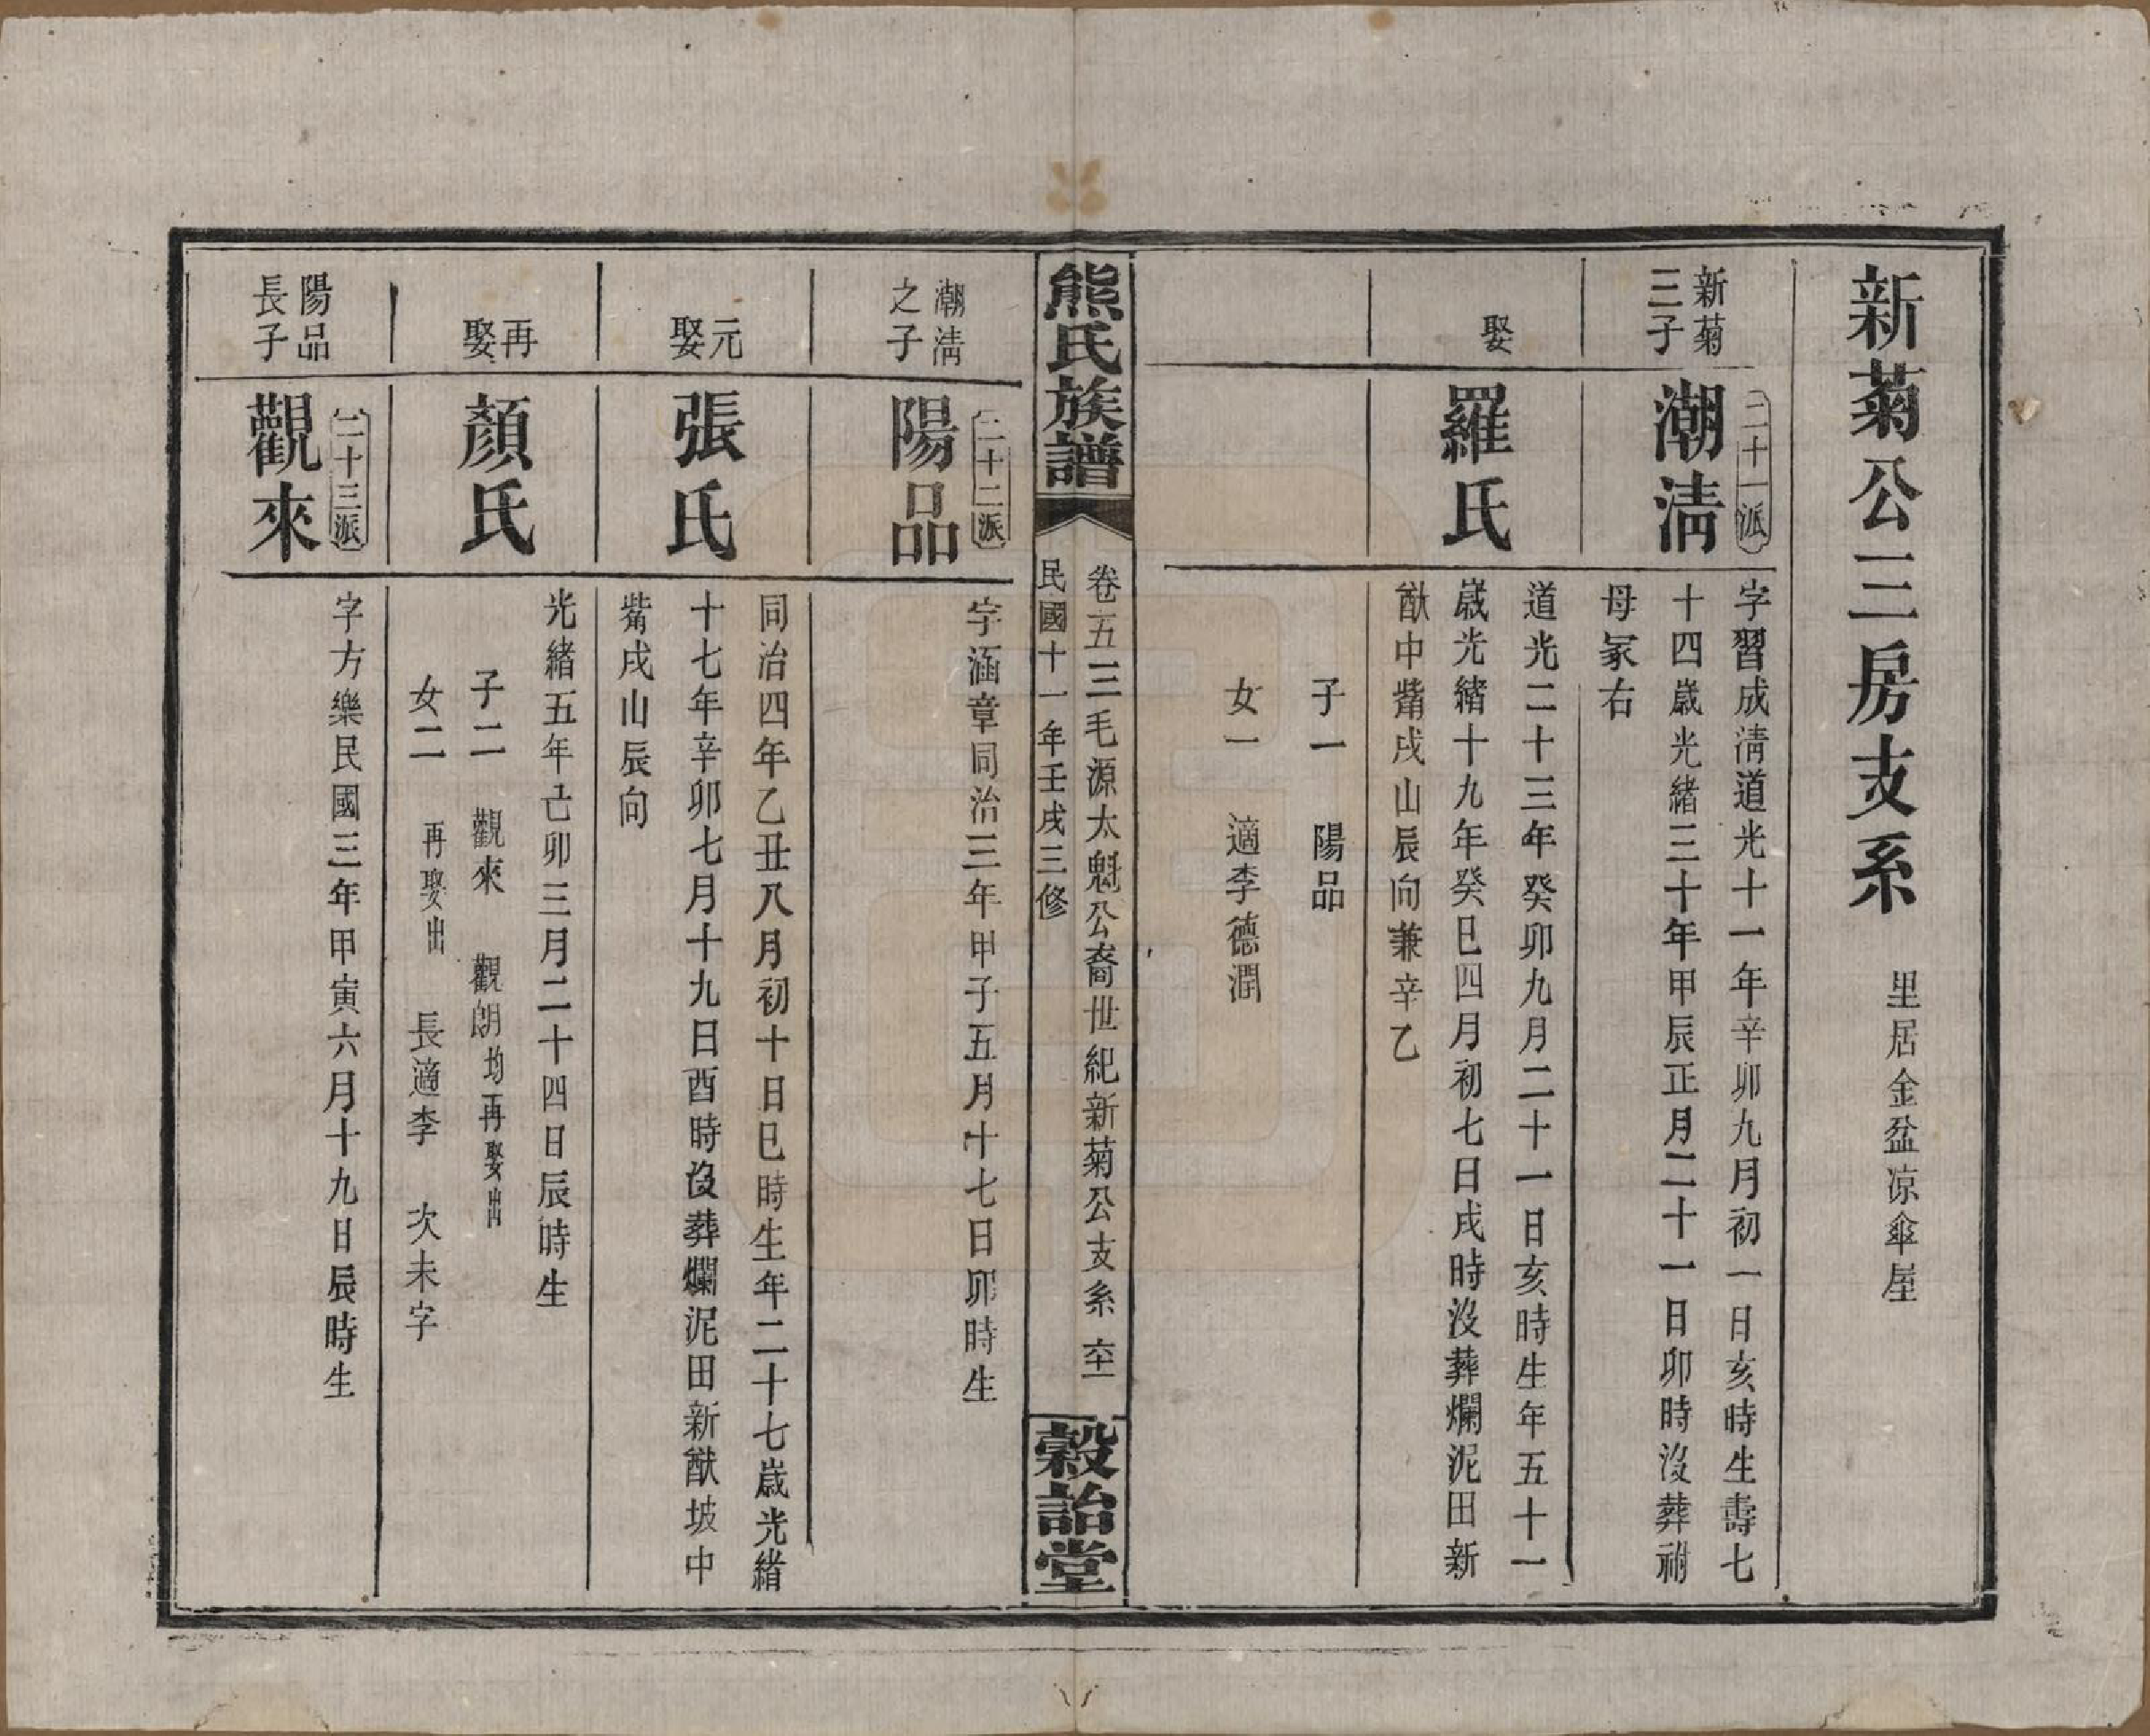 新菊公三房支系 里居金盆凉傘屋
新菊
三子
潮淸
二十一派
字習成淸道光十一年辛卯九月初一日亥時生壽七
十四歲光緒三十年甲辰正月二十一日卯時沒葬祔
母冢右
娶
羅氏
道光二十三年癸卯九月二十一日亥時生年五十一
歲光緒十九年癸巳四月初七日戌時沒葬爛泥田新
猷中觜戌山辰向兼辛乙
子一 陽品
女一 適李德潤
熊氏族譜
卷五 三毛源太魁公裔世紀新菊公支系 六十一
民國十一年壬戌三修
穀詒堂
潮淸
之子
陽品
二十二派
字涵章同治三年甲子五月十七日卯時生
元
娶
張氏
同治四年乙丑八月初十日巳時生年二十七歲光緒
十七年辛卯七月十九日酉時沒葬爛泥田新猷坡中
觜戌山辰向
再
娶
顏氏
光緒五年己卯三月二十四日辰時生
子二 觀來 觀朗 均再娶出
女二 再娶出 長適李 次未字
陽品
長子
觀來
二十三派
字方樂民國三年甲寅六月十九日辰時生